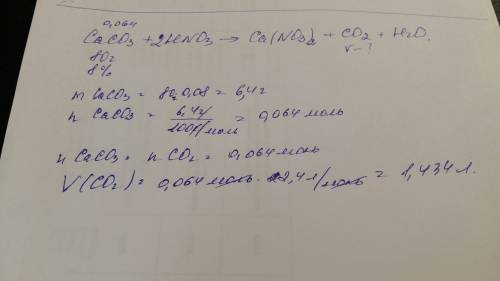 0,064
CaCO3 + 2HNO3 → Ca(NO3)2 + CO2 + H2O.
80г V-?
8%
m CaCO3 = 80·0,08 = 6,4г
n CaCO3 = 6,4г/100г/моль = 0,064 моль
n CaCO3 = n CO2 = 0,064 моль
V(CO2) = 0,064 моль · 22,4 л/моль = 1,434 л.